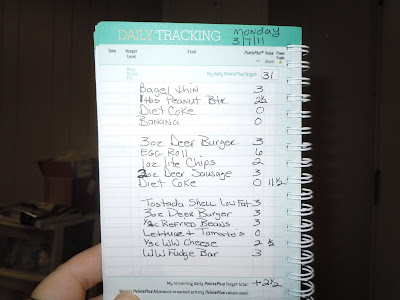 DAILY TRACKING Monday
3/7/11
Time Hunger Level Food PointsPlus® Value
My daily PointsPlus Target: 31
Bagel thin 3
1 tbs Peanut Btr 2½
Diet Coke 0
Banana 0
3oz Deer Burger 3
Egg Roll 6
1oz lite Chips 2
2oz Deer Sausage 3
Diet Coke 0 11½
Tostada Shell Low Fat 3
3oz Deer Burger 3
Refried Beans 3
Lettuce + Tomatoes 0
WW Cheese 2½
WW Fudge Bar 3
My remaining daily PointsPlus Target total: +2½
Weekly PointsPlus Allowance or earned activity PointsPlus values used: